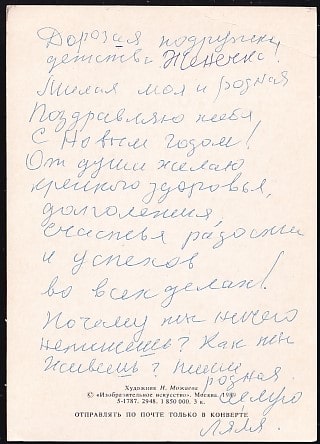 Дорогая подружка
детства Женечка.
Милая моя и родная
Поздравляю тебя
С Новым годом!
От души желаю
крепкого здоровья,
долголетия,
счастья радости
и успехов
во всех делах!
Почему ты ничего
непишешь? Как ты
живёшь? пиши
родная
целую
Ляля.
Художник Н. Можаева
© «Изобразительное искусство». Москва. 1989
5-1787. 2948. 1 850 000. 3 к.
ОТПРАВЛЯТЬ ПО ПОЧТЕ ТОЛЬКО В КОНВЕРТЕ